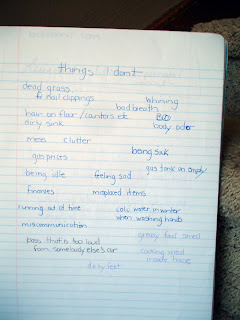 things I dont
dead grass
nail clippings
whining
bad breath
hair on floor / counters etc
BO
body odor
dirty sink
mess clutter
being sick
gas prices
gas tank on empty
being idle feeling sad
finances misplaced items
running out of time
cold water in winter
when washing hands
miscommunication
greasy food smell
bass that is too loud
from somebody else's car
cooking smell
inside house
dirty feet